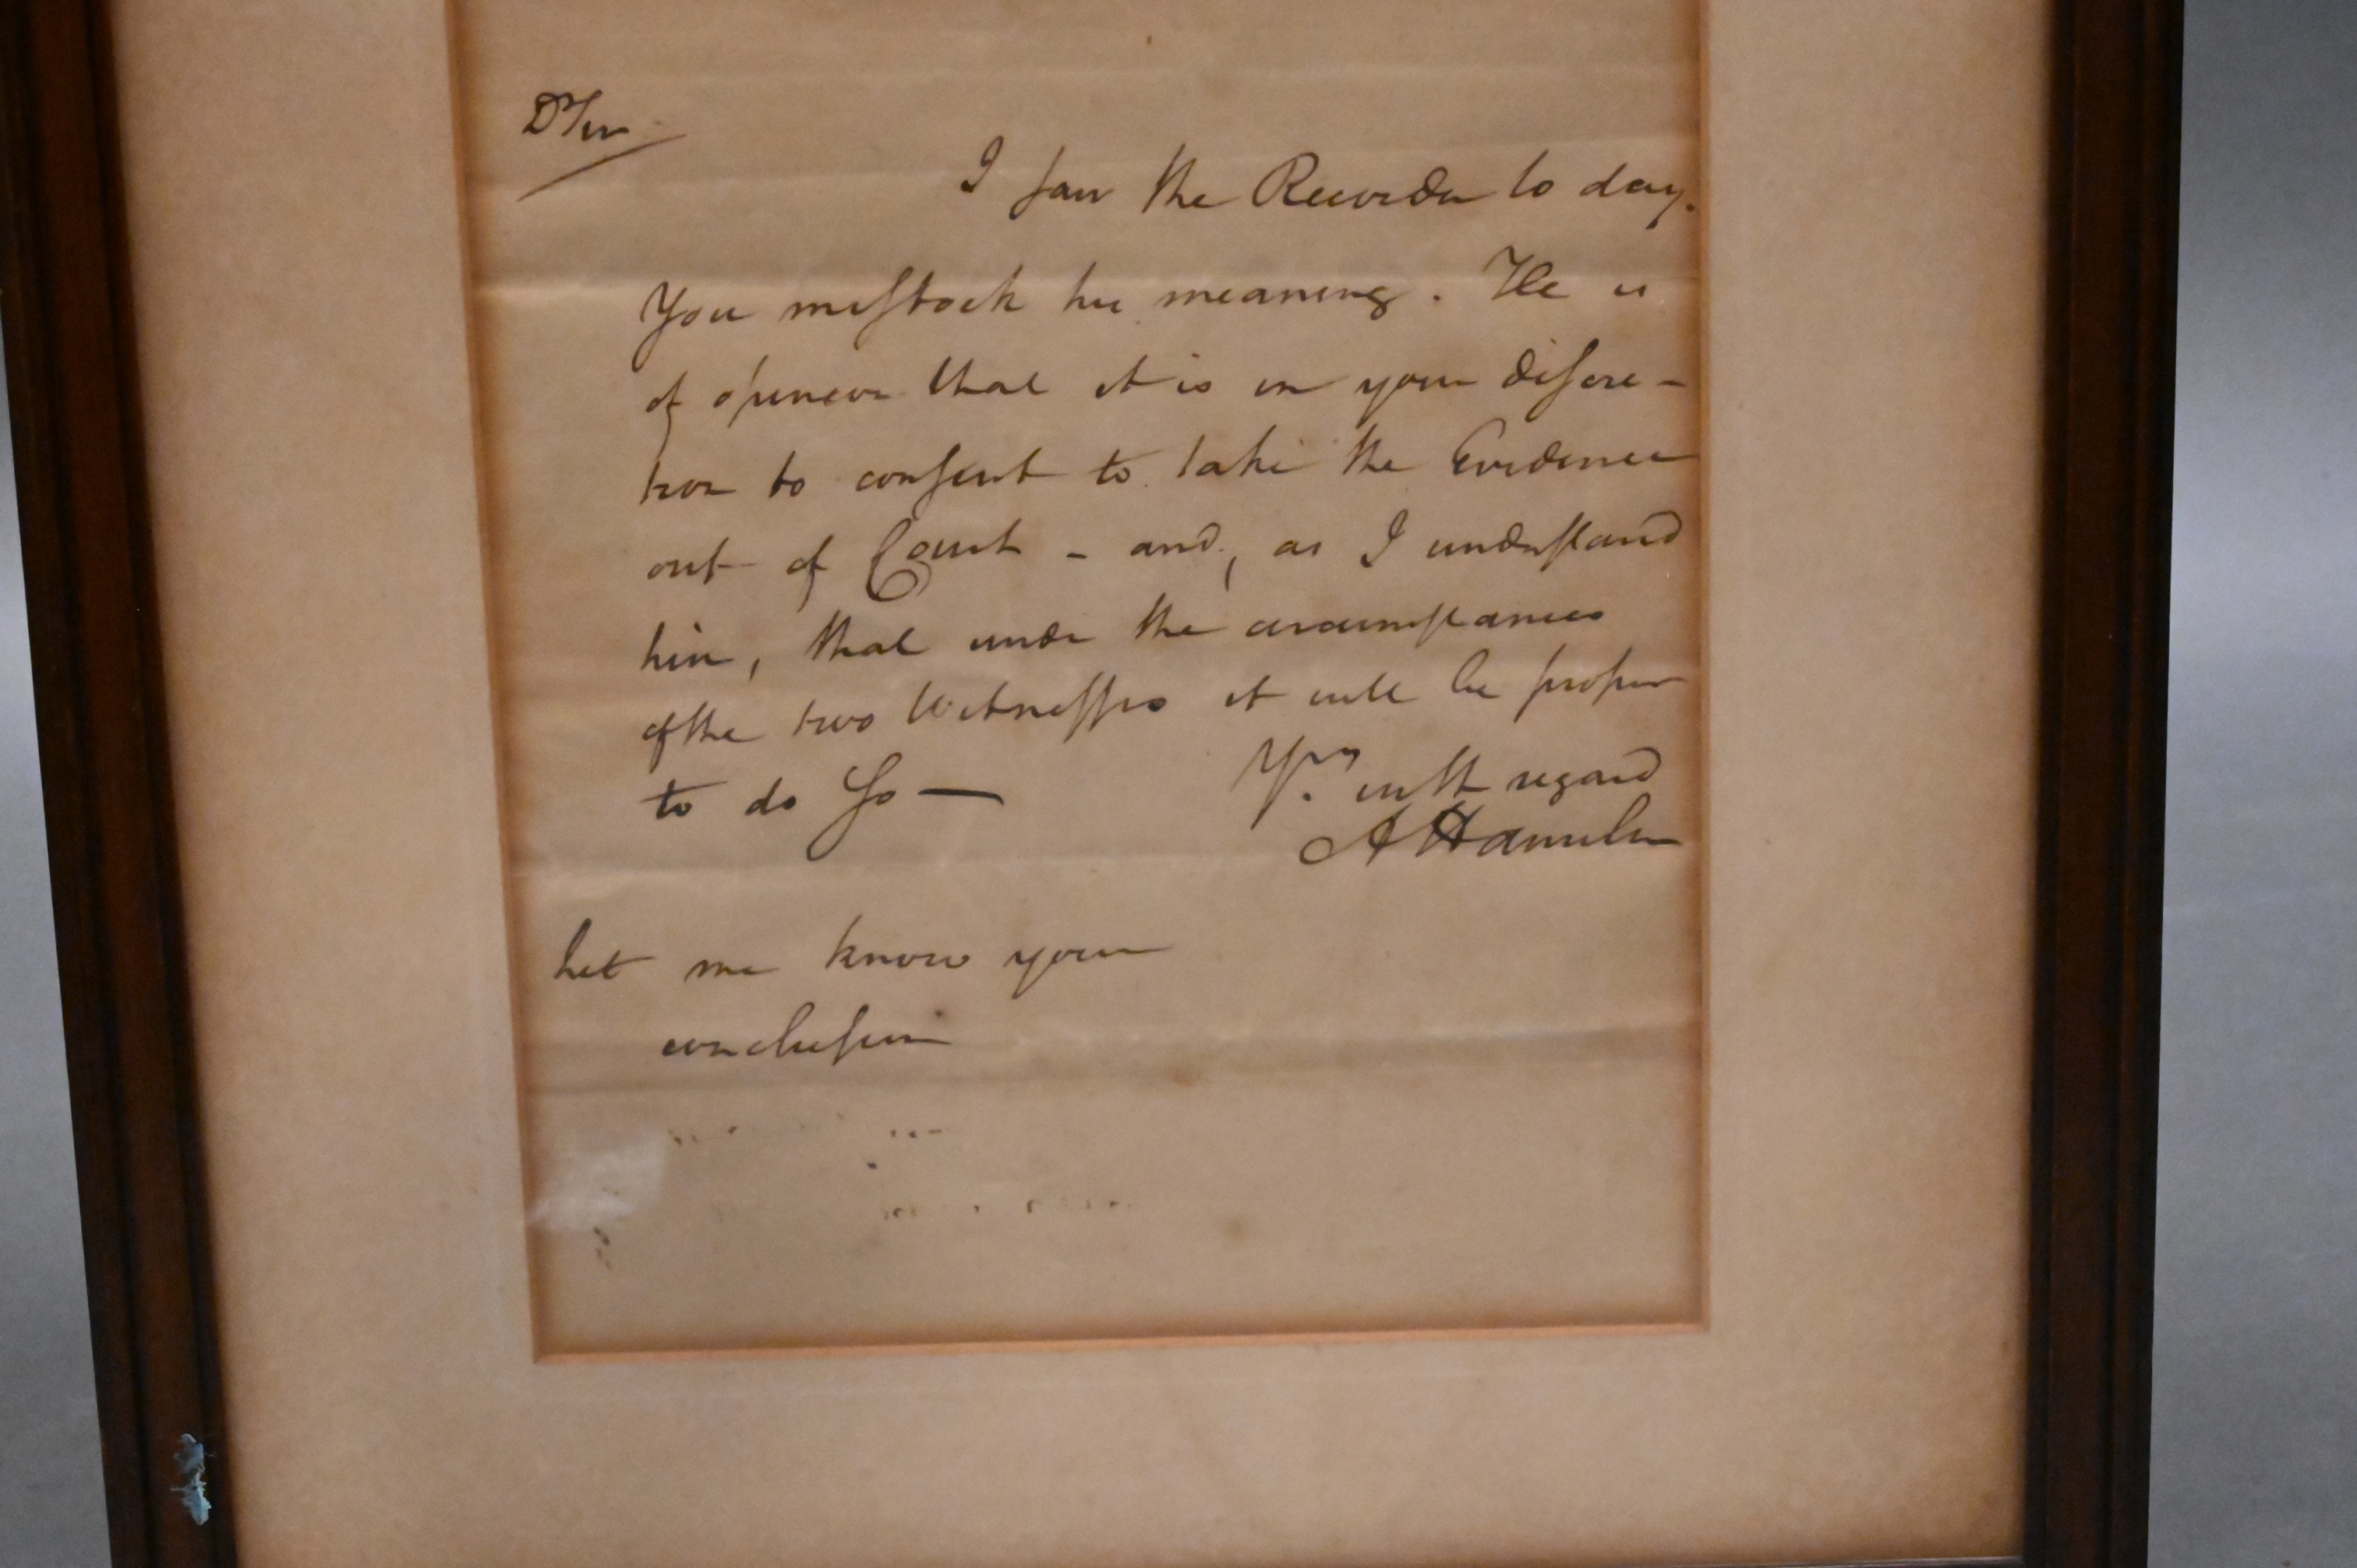 Dr Sir
I saw the Recorder to day.
You mistook his meaning. He is
of opinion that it is in your discre-
tion to consent to take the Evidence
out of Court - and, as I understand
him, that under the circumstances
of the two Witnesses it will be proper
to do so —
Yrs. with regard
A Hamilton
Let me know your
conclusion